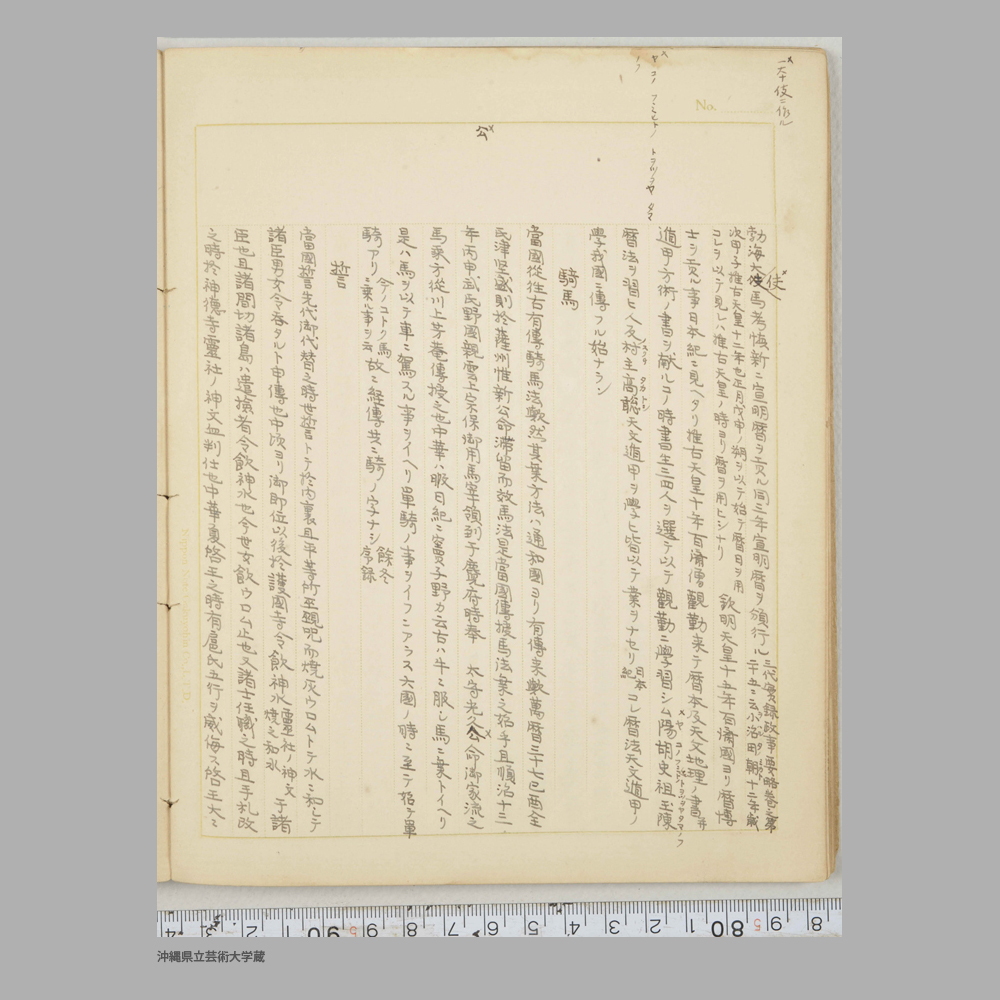 一本伎ニ作ル
渤海大使馬孝愼新ニ宣明暦ヲ貢ル同三年宣明暦ヲ頒行ル三代實録故事要略巻之第二十五ニ云小治田朝十二年歳
次甲子推古天皇十二年也正月戊申ノ朔ヲ以テ始テ暦日ヲ用
コレヲ以テ見レハ推古天皇ノ時ヨリ暦ヲ用ヒシナリ 欽明天皇十五年百濟國ヨリ暦博
士ヲ貢ル事日本紀ニ見ヘタリ推古天皇十年百濟僧觀勤来テ暦本及天文地理ノ書并
遁甲方術ノ書ヲ献ルコノ時書生三四人ヲ選テ以テ觀勤ニ學習シム陽胡史祖玉陳
暦法ヲ習ヒ人友村主高聡天文遁甲ヲ學ヒ皆以テ業ヲナセリ日本紀コレ暦法天文遁甲ノ
學我國ニ傳フル始ナラン
騎馬
當國從往古有傳騎馬法歟然其業方法ハ通和國ヨリ有傳来歟萬暦三十七己酉全
氏津堅盛則於薩州惟新公命滞留而效馬法是當國傳授馬法業之始乎且順治十三
年丙申武氏野國親雲上宗保御用馬宰領到于麑府時奉 太守光久公命御家流之
公
馬乘方從川上芳菴傳授之也中華ハ暇日紀ニ竇子野カ云古ハ牛ニ服シ馬ニ乗トイヘリ
是ハ馬ヲ以テ車ニ駕スル事ヲイヘリ單騎ノ事ヲイフニアラス六國ノ時ニ至テ始テ單
騎アリ今ノコトク馬ニ乗ル事ヲ云故ニ経傳共ニ騎ノ字ナシ餘冬序録
誓
當國誓先代御代替之時世誓トテ於内裏且平等所至題呪而焼灰ウロムトテ水ニ和シテ
諸臣男女令呑タルト申傳也中頃ヨリ御即位以後於護國寺令飲神水靈社ノ神文焼之和水于諸
臣也且諸間切諸島ハ遣撿者令飲神水也今世女飲ウロム止也又諸士任職之時且手札改
之時於神徳寺靈社ノ神文血判仕也中華夏啓王之時有扈氏五行ヲ威侮ス啓王大ニ
沖縄県立芸術大学蔵